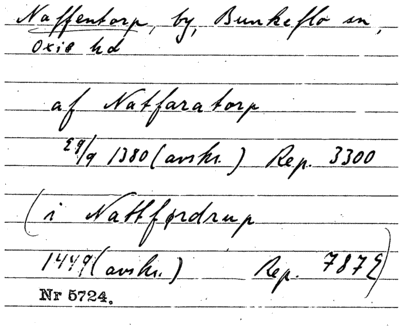 Naffentorp, by, Bunkeflo sn,
Oxie hd
af Natfaratorp
29/9 1380 (avskr.) Rep. 3300
(i Nattførdrup
1449 (avskr.) Rep. 7872)
Nr 5724.